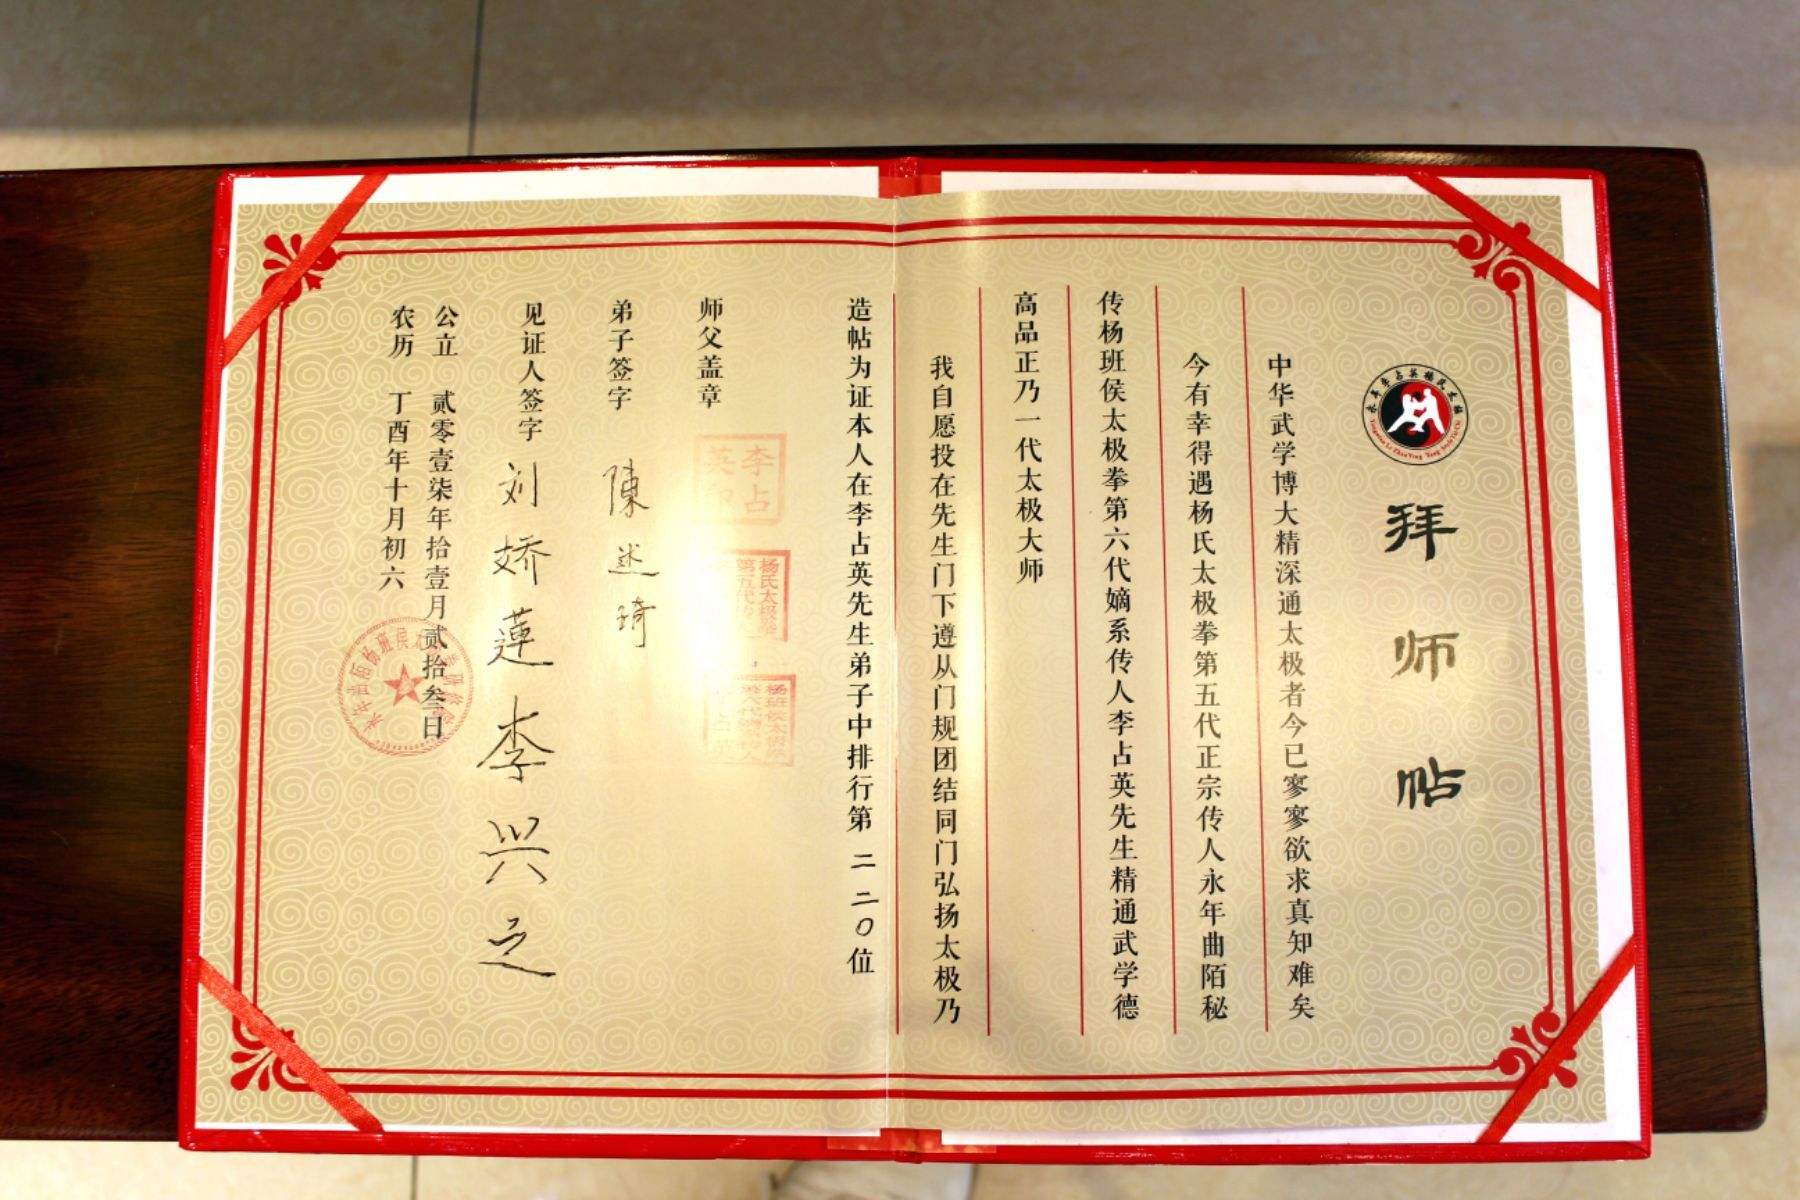 拜师帖
中华武学博大精深通太极者今已寥寥欲求真知难矣
今有幸得遇杨氏太极拳第五代正宗传人永年曲陌秘
传杨班侯太极拳第六代嫡系传人李占英先生精通武学德
高品正乃一代太极大师
我自愿投在先生门下遵从门规团结同门弘扬太极乃
造帖为证本人在李占英先生弟子中排行第二二〇位
师父盖章
李占英印
杨氏太极拳
第五代
杨班侯太极拳
李占英
弟子签字 陳述琦
见证人签字 刘娇蓮 李兴之
公立 贰零壹柒年拾壹月贰拾叁日
农历 丁酉年十月初六